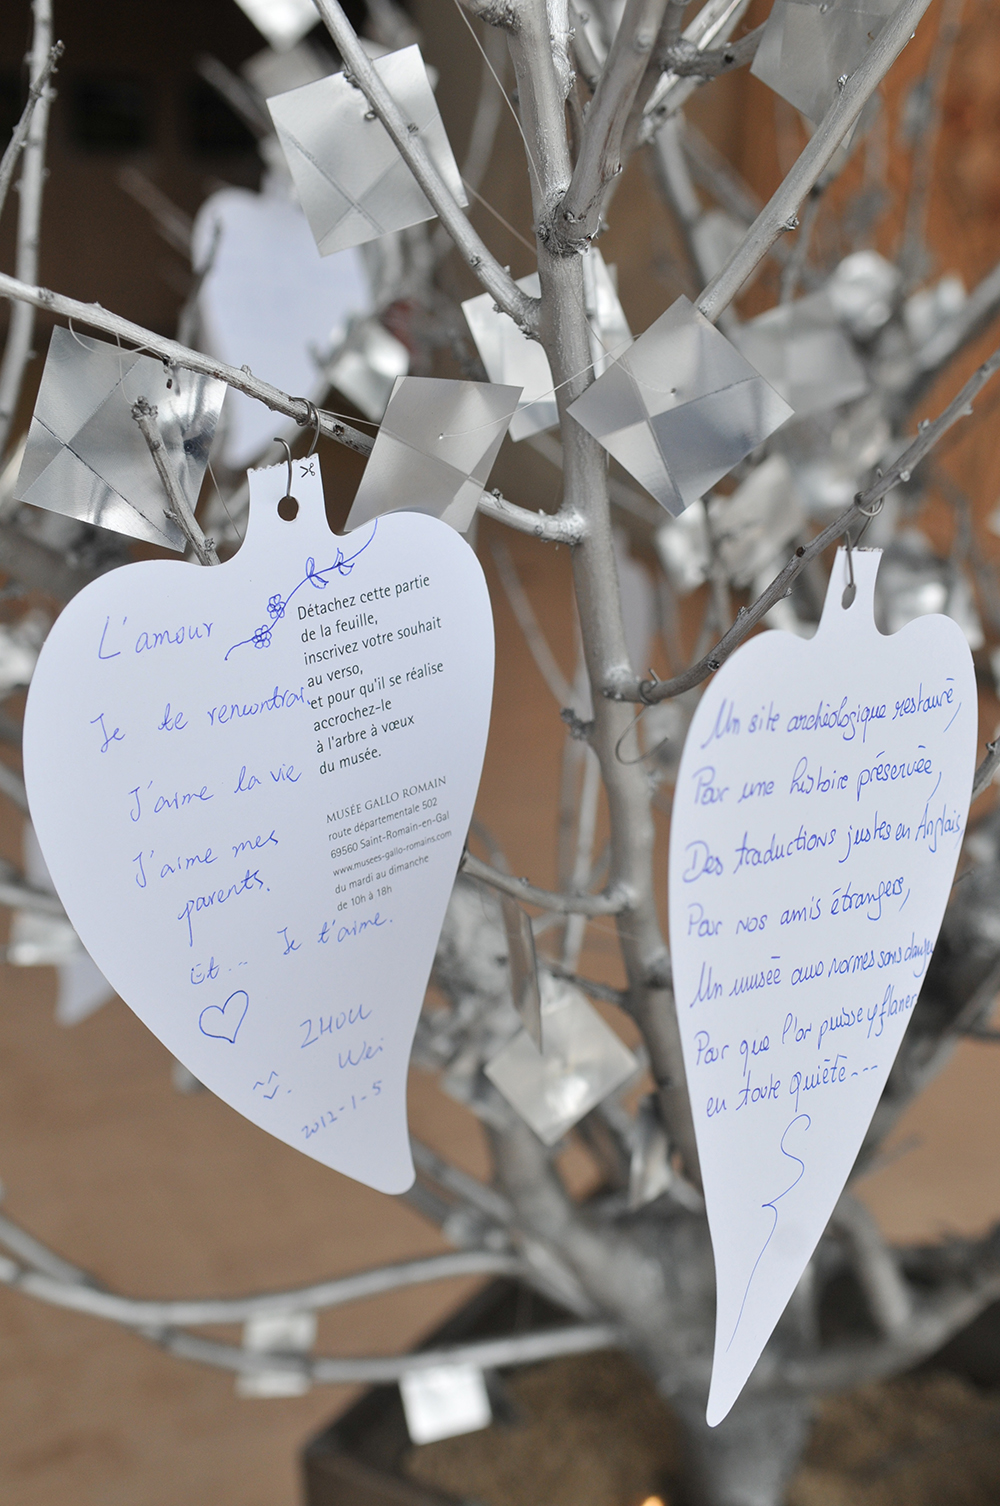 L'amour
Je te rencontrai
J'aime la vie
J'aime mes
parents.
Et... Je t'aime.
ZHOU
Wei
2012-1-5
Détachez cette partie
de la feuille,
inscrivez votre souhait
au verso,
et pour qu'il se réalise
accrochez-le
à l'arbre à vœux
du musée.
MUSÉE GALLO ROMAIN
route départementale 502
69560 Saint-Romain-en-Gal
www.musees-gallo-romains.com
du mardi au dimanche
de 10h à 18h
Un site archéologique restauré,
Pour une histoire préservée,
Des traductions justes en Anglais,
Pour nos amis étrangers,
Un musée aux normes sans danger
Pour que l'on puisse y flaner
en toute quiété---